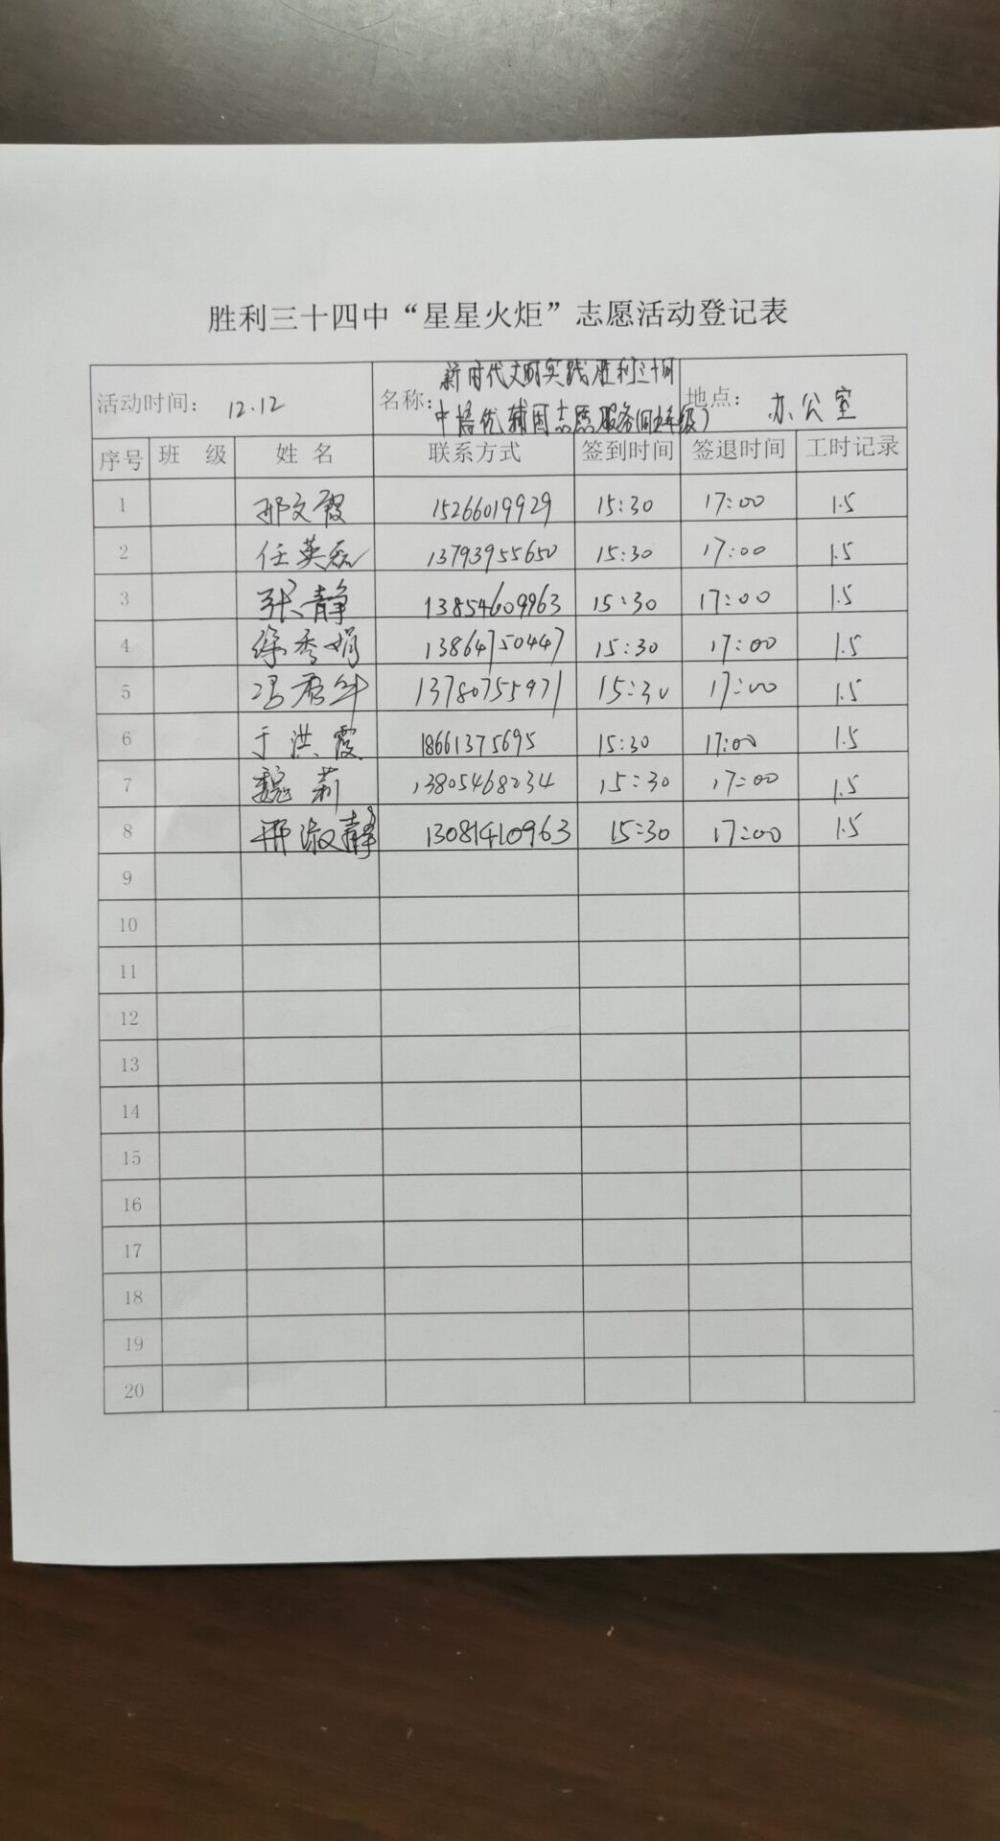 胜利三十四中“星星火炬”志愿活动登记表
活动时间: 12.12 名称: 新时代文明实践胜利三十四中培优辅困志愿服务 地点: 办公室
序号 班 级 姓 名 联系方式 签到时间 签退时间 工时记录
1 邢文霞 15266019929 15:30 17:00 1.5
2 任英磊 13793955650 15:30 17:00 1.5
3 张静 13854609963 15:30 17:00 1.5
4 徐秀娟 13864750447 15:30 17:00 1.5
5 13780755971 15:30 17:00 1.5
6 于洪霞 18661375695 15:30 17:00 1.5
7 魏莉 13805468234 15:30 17:00 1.5
8 邢淑静 13081410963 15:30 17:00 1.5
9
10
11
12
13
14
15
16
17
18
19
20